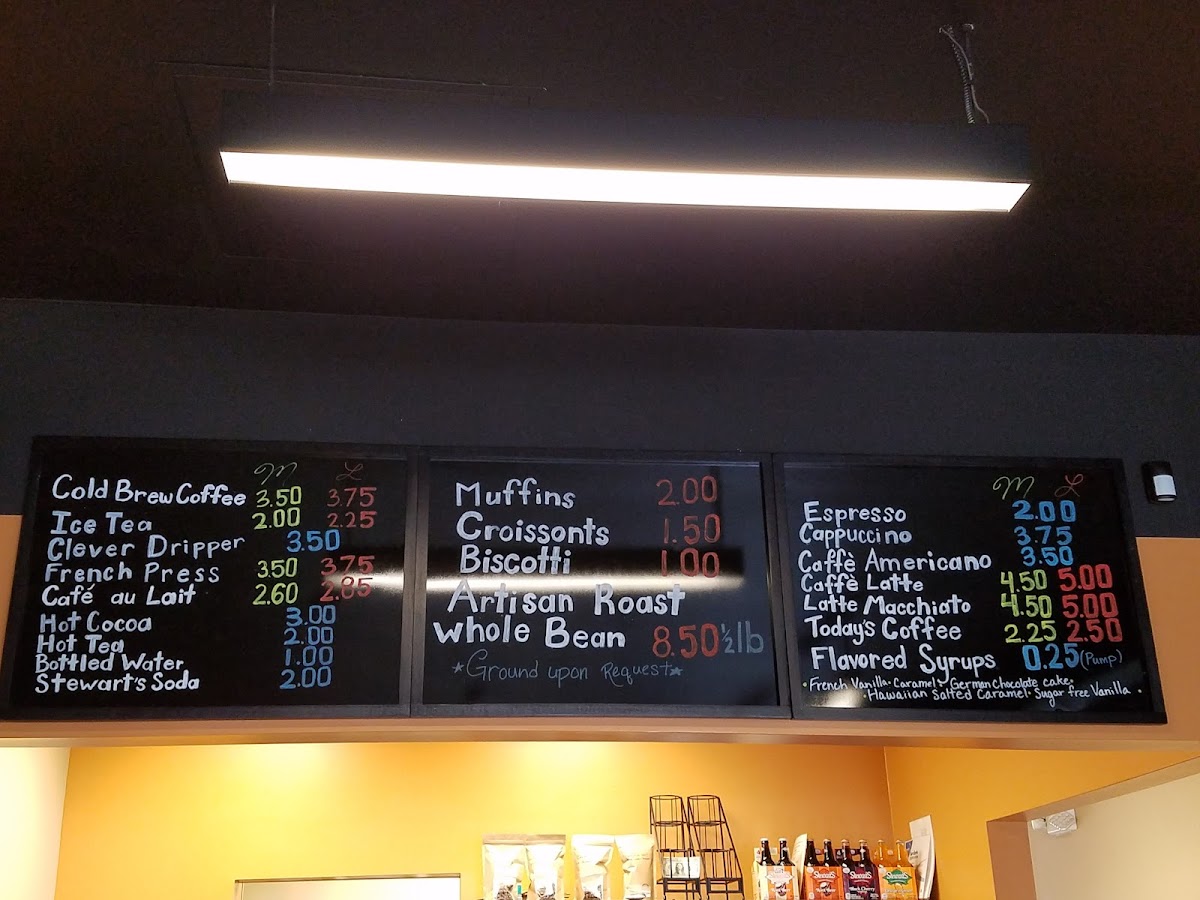 M L
Cold Brew Coffee 3.50 3.75
Ice Tea 2.00 2.25
Clever Dripper 3.50
French Press 3.50 3.75
Café au Lait 2.60 2.85
Hot Cocoa 3.00
Hot Tea 2.00
Bottled Water 1.00
Stewart's Soda 2.00
Muffins 2.00
Croissonts 1.50
Biscotti 1.00
Artisan Roast
Whole Bean 8.50 ½ lb
*Ground upon Request*
M L
Espresso 2.00
Cappuccino 3.75
Caffè Americano 3.50
Caffè Latte 4.50 5.00
Latte Macchiato 4.50 5.00
Today's Coffee 2.25 2.50
Flavored Syrups 0.25 (Pump)
• French Vanilla • Caramel • German Chocolate cake •
• Hawaiian Salted Caramel • Sugar free Vanilla •
Stewart's Stewart's Stewart's
Black Cherry